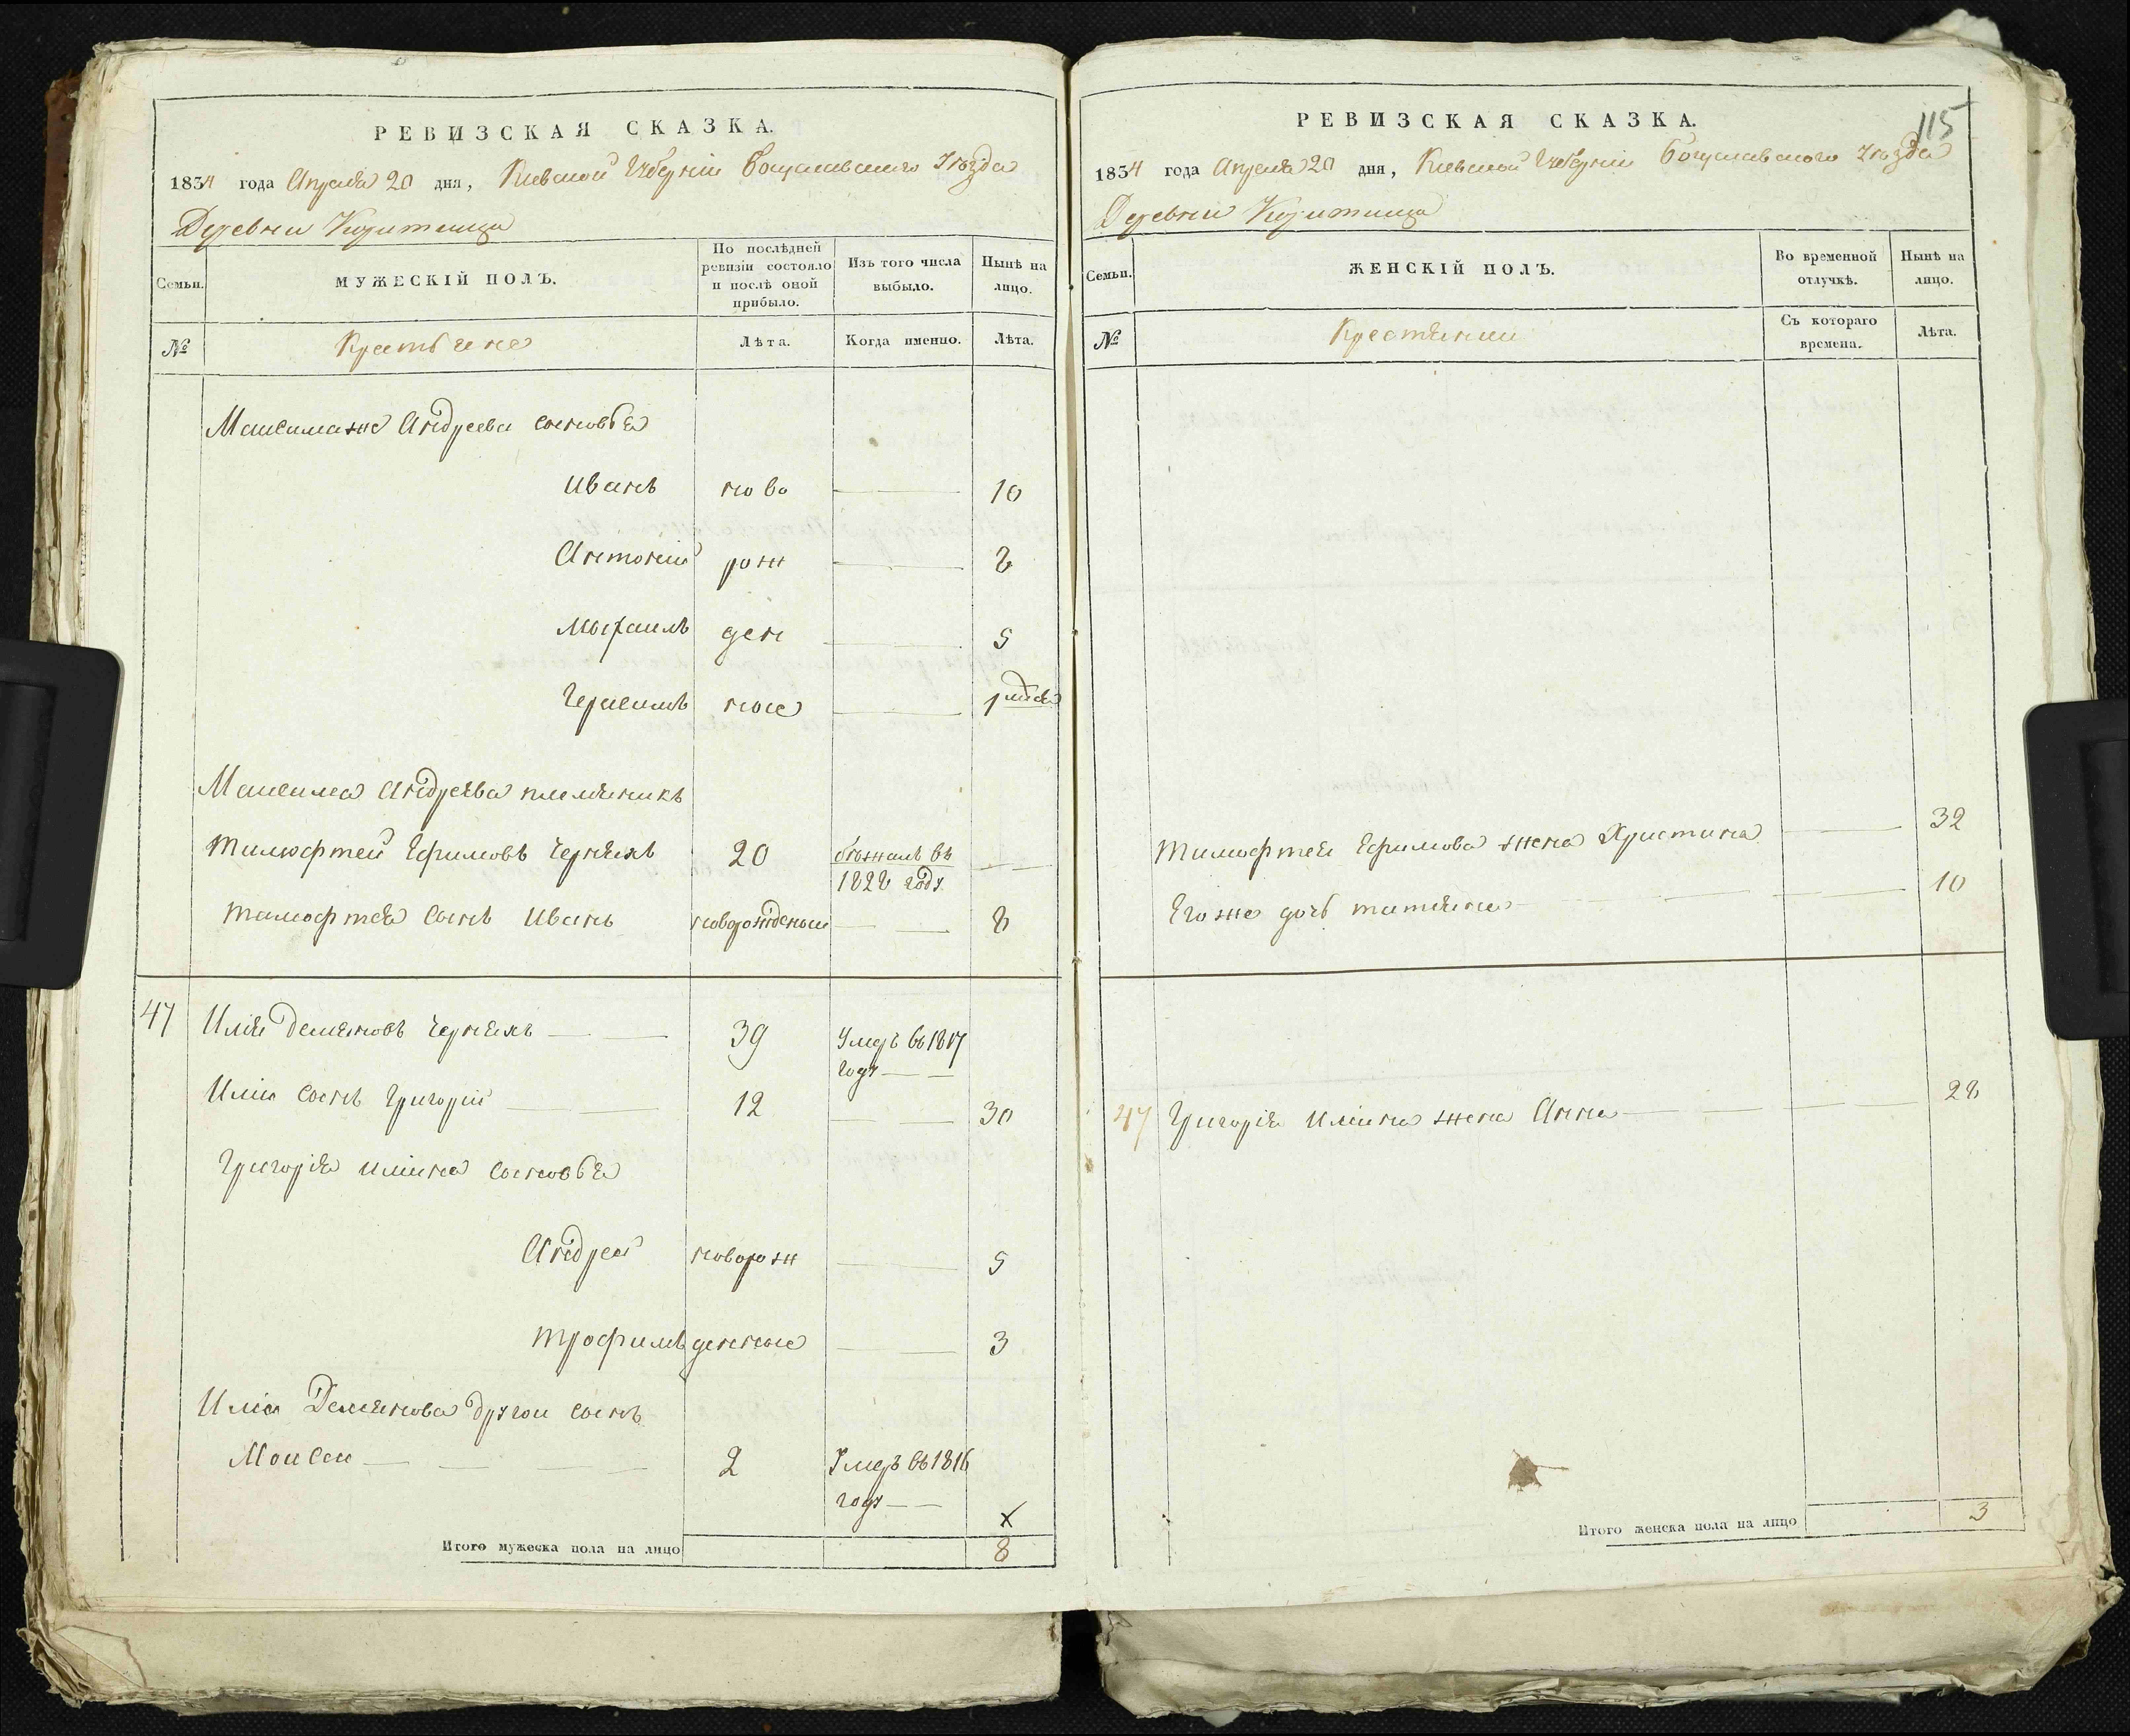 РЕВИЗСКАЯ СКАЗКА.
1834 года Апреля 20 дня, Киевской Губерніи Богуславского Уѣзда
Деревни Коритища
Семьи.
МУЖЕСКІЙ ПОЛЪ.
По послѣдней ревизіи состояло и послѣ оной прибыло.
Изъ того числа выбыло.
Нынѣ на лицо.
№
Крестьяне
Лѣта.
Когда именно.
Лѣта.
Максима же Андреева сыновья
Иванъ ново 10
Антоній рож 8
Михаилъ ден 5
Герасимъ ные 1 мѣся
Максима Андреева племяникъ
Тимофтей Ефимовъ Чернякъ 20 бѣжалъ въ 1828 году
Тимофтея сынъ Иванъ новорожденый 8
47 Илія Демяновъ Чернякъ 39 Умеръ въ 1817 году
Иліи сынъ Григорій 12 30
Григорія Иліина сыновья
Андрейноворож 5
Трофимъ денные 3
Иліи Демянова другои сынъ
Моисеи 2 Умеръ въ 1816 году
х
Итого мужеска пола на лицо 8
115
РЕВИЗСКАЯ СКАЗКА.
1834 года Апреля 20 дня, Киевской Губерніи Богуславского Уѣзда
Деревни Коритища
Семьи.
ЖЕНСКІЙ ПОЛЪ.
Во временной отлучкѣ.
Нынѣ на лицо.
№
Крестянки
Съ котораго времена.
Лѣта.
Тимофтея Ефимова жена Христина 32
Его же дочь татяна 10
47 Григорія Иліина жена Анна 28
Итого женска пола на лицо 3